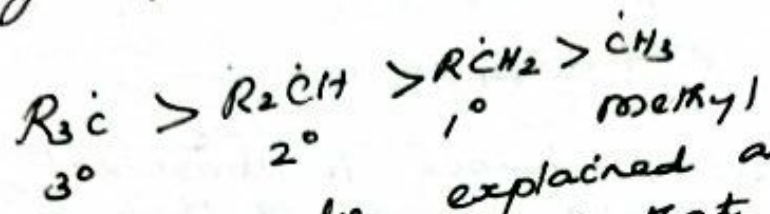 R₃Ċ > R₂ĊH > RĊH₂ > ĊH₃
3° 2° 1° methyl
explained a